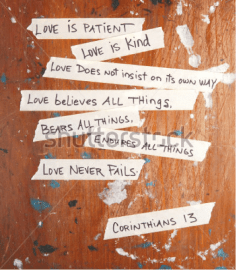 LOVE IS PATIENT
LOVE IS KIND
LOVE DOES NOT INSIST ON ITS OWN WAY
LOVE BELIEVES ALL THINGS,
BEARS ALL THINGS,
ENDURES ALL THINGS
shutterstock
LOVE NEVER FAILS
CORINTHIANS 13